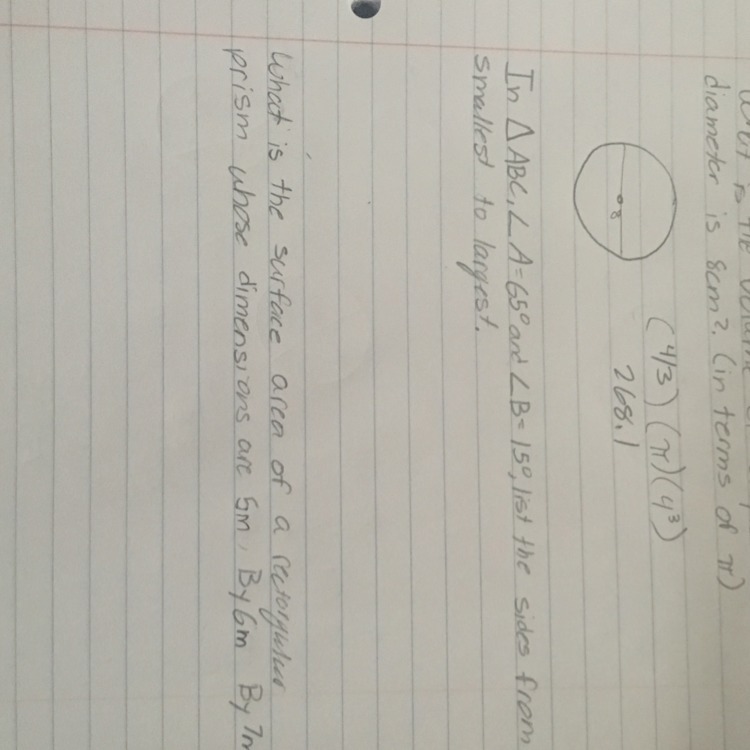 What is the volume
diameter is 8cm? (in terms of π)
8
(4/3)(π)(4³)
268.1
In △ABC, ∠A=65° and ∠B=15°, list the sides from
smallest to largest.
What is the surface area of a rectangular
prism whose dimensions are 5m, By 6m By 7m